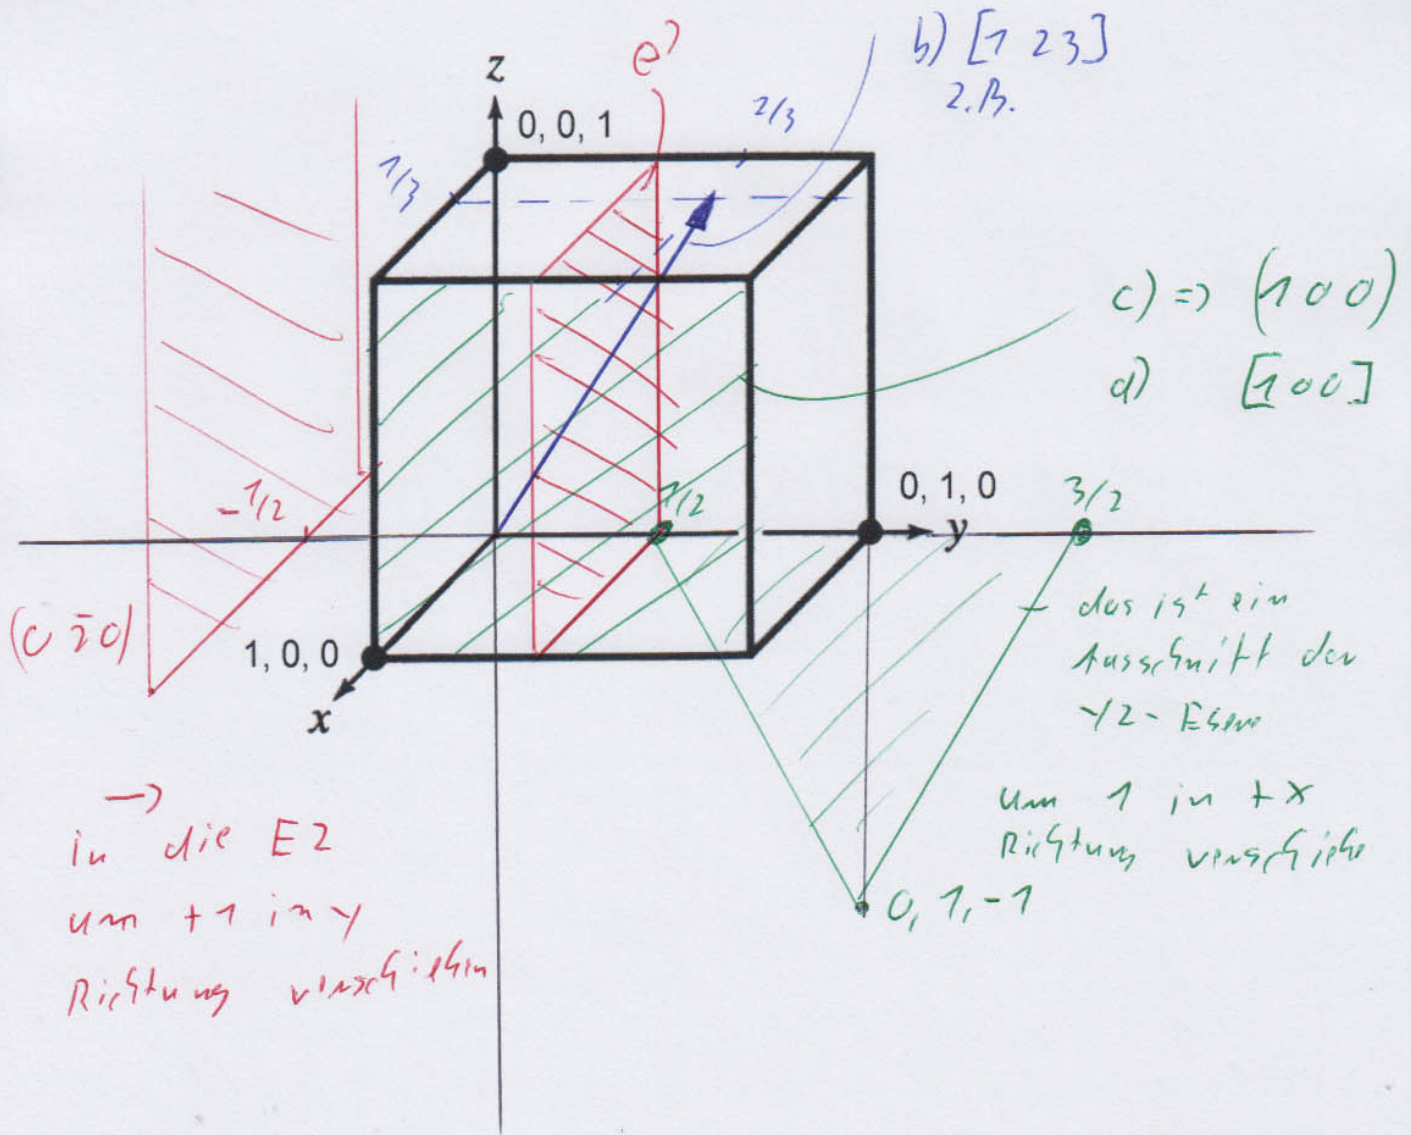 e)
b) [1 2 3]
z.B.
z
0, 0, 1
2/3
1/3
c) => (1 0 0)
d) [1 0 0]
0, 1, 0
3/2
1/2
-1/2
y
(0 2̄ 0)
1, 0, 0
x
das ist ein
Ausschnitt der
yz-Ebene
um 1 in +x
Richtung verschiebe
0, 1, -1
→
in die EZ
um +1 in y
Richtung verschieben